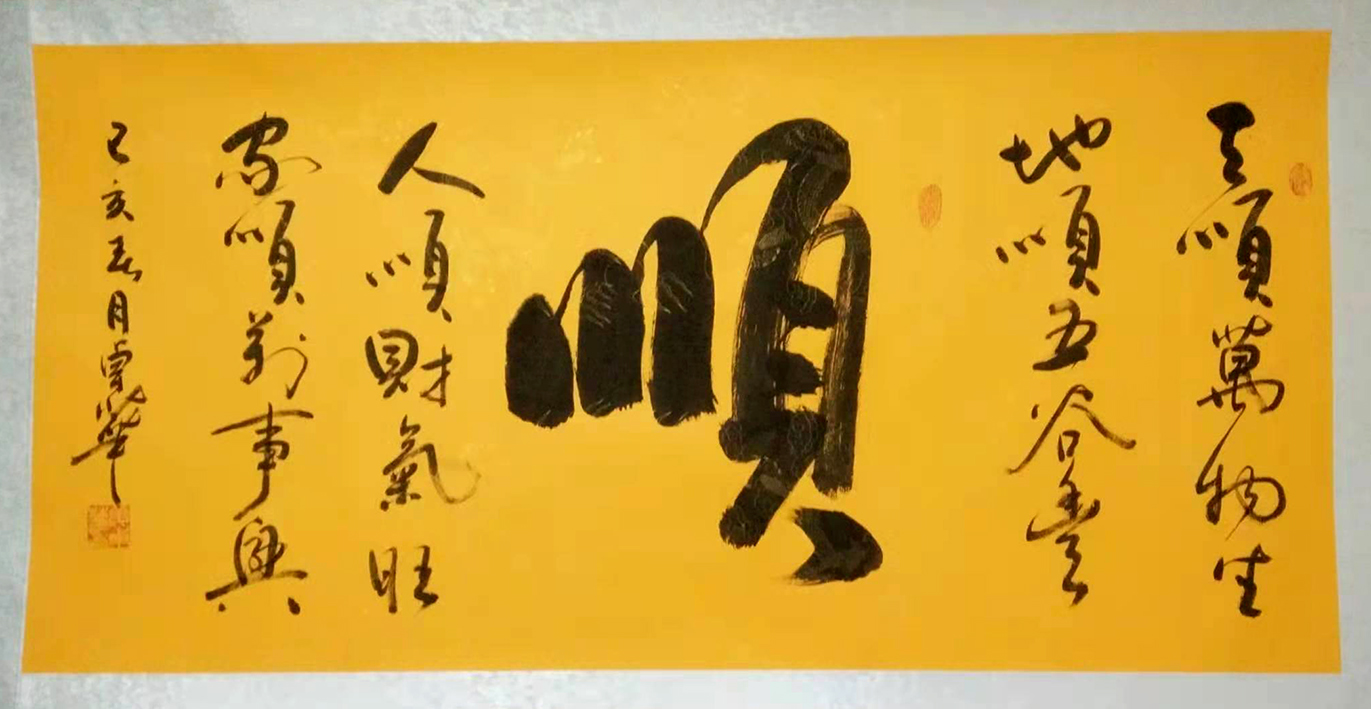 天順萬物生
地順五谷豊
順
人順財氣旺
家順萬事興
己亥春月